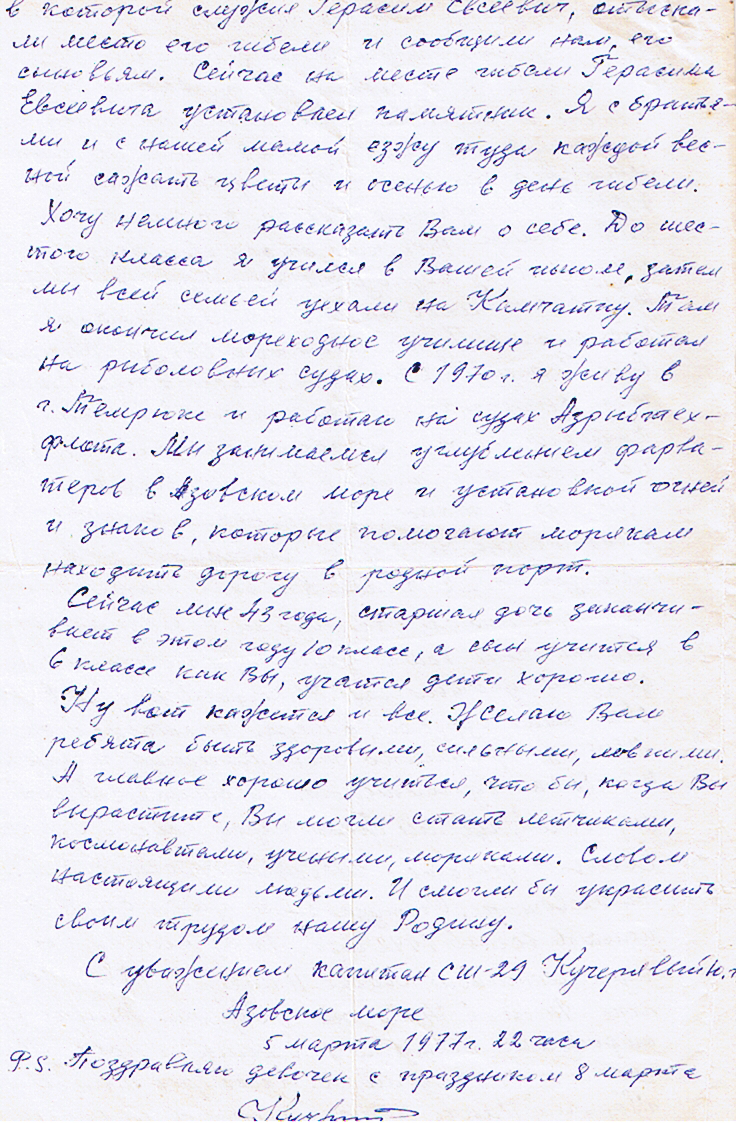 в которой служил Герасим Евсеевич, отыска-
ли место его гибели и сообщили нам, его
сыновьям. Сейчас на месте гибели Герасима
Евсеевича установлен памятник. Я с братья-
ми и с нашей мамой езжу туда каждой вес-
ной сажать цветы и осенью в день гибели.
Хочу немного рассказать Вам о себе. До шес-
того класса я учился в Вашей школе, затем
мы всей семьей уехали на Камчатку. Там
я окончил мореходное училище и работал
на рыболовных судах. С 1970 г. я живу в
г. Темрюке и работаю на судах Азрыбтех-
флота. Мы занимаемся углублением фарва-
теров в Азовском море и установкой огней
и знаков, которые помогают морякам
находить дорогу в родной порт.
Сейчас мне 43 года, старшая дочь заканчи-
вает в этом году 10 класс, а сын учится в
6 классе как Вы, учатся дети хорошо.
Ну вот кажется и все. Желаю Вам
ребята быть здоровыми, сильными, ловкими.
А главное хорошо учиться, что бы, когда Вы
вырастите, Вы могли стать летчиками,
космонавтами, учеными, моряками. Словом
настоящими людьми. И смогли бы украсить
своим трудом нашу Родину.
С уважением капитан СШ-29 Кучерявый Ю.Г
Азовское море
5 марта 1977 г. 22 часа
P.S. Поздравляю девочек с праздником 8 марта